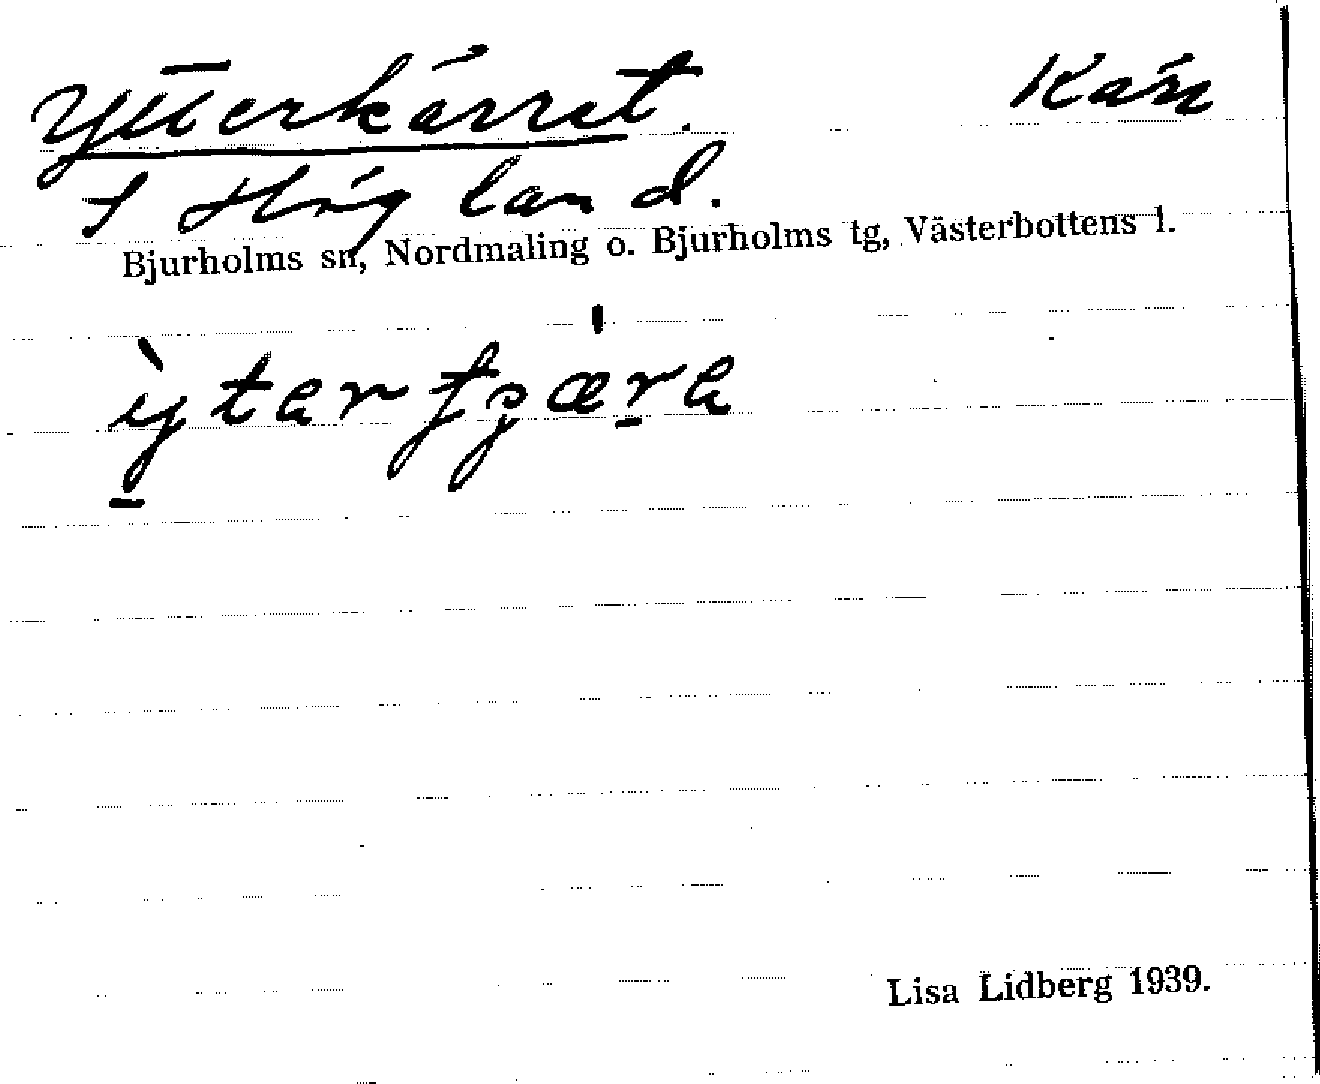 Ytterkärret. Kärr
S Högland.
Bjurholms sn, Nordmaling o. Bjurholms tg, Västerbottens l.
Lisa Lidberg 1939.